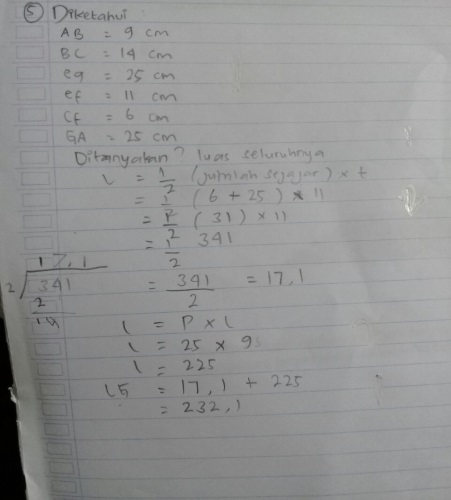 5 Diketahui
AB = 9 cm
BC = 14 cm
eg = 25 cm
ef = 11 cm
Cf = 6 cm
GA = 25 cm
Ditanyakan? luas seluruhnya
L = 1/2 (jumlah sejajar) x t
= 1/2 (6 + 25) x 11
= 1/2 (31) x 11
= 1/2 341
= 341/2 = 17,1
17,1
2 341
2
14
L = P x L
L = 25 x 9
L = 225
= 17,1 + 225
= 232,1